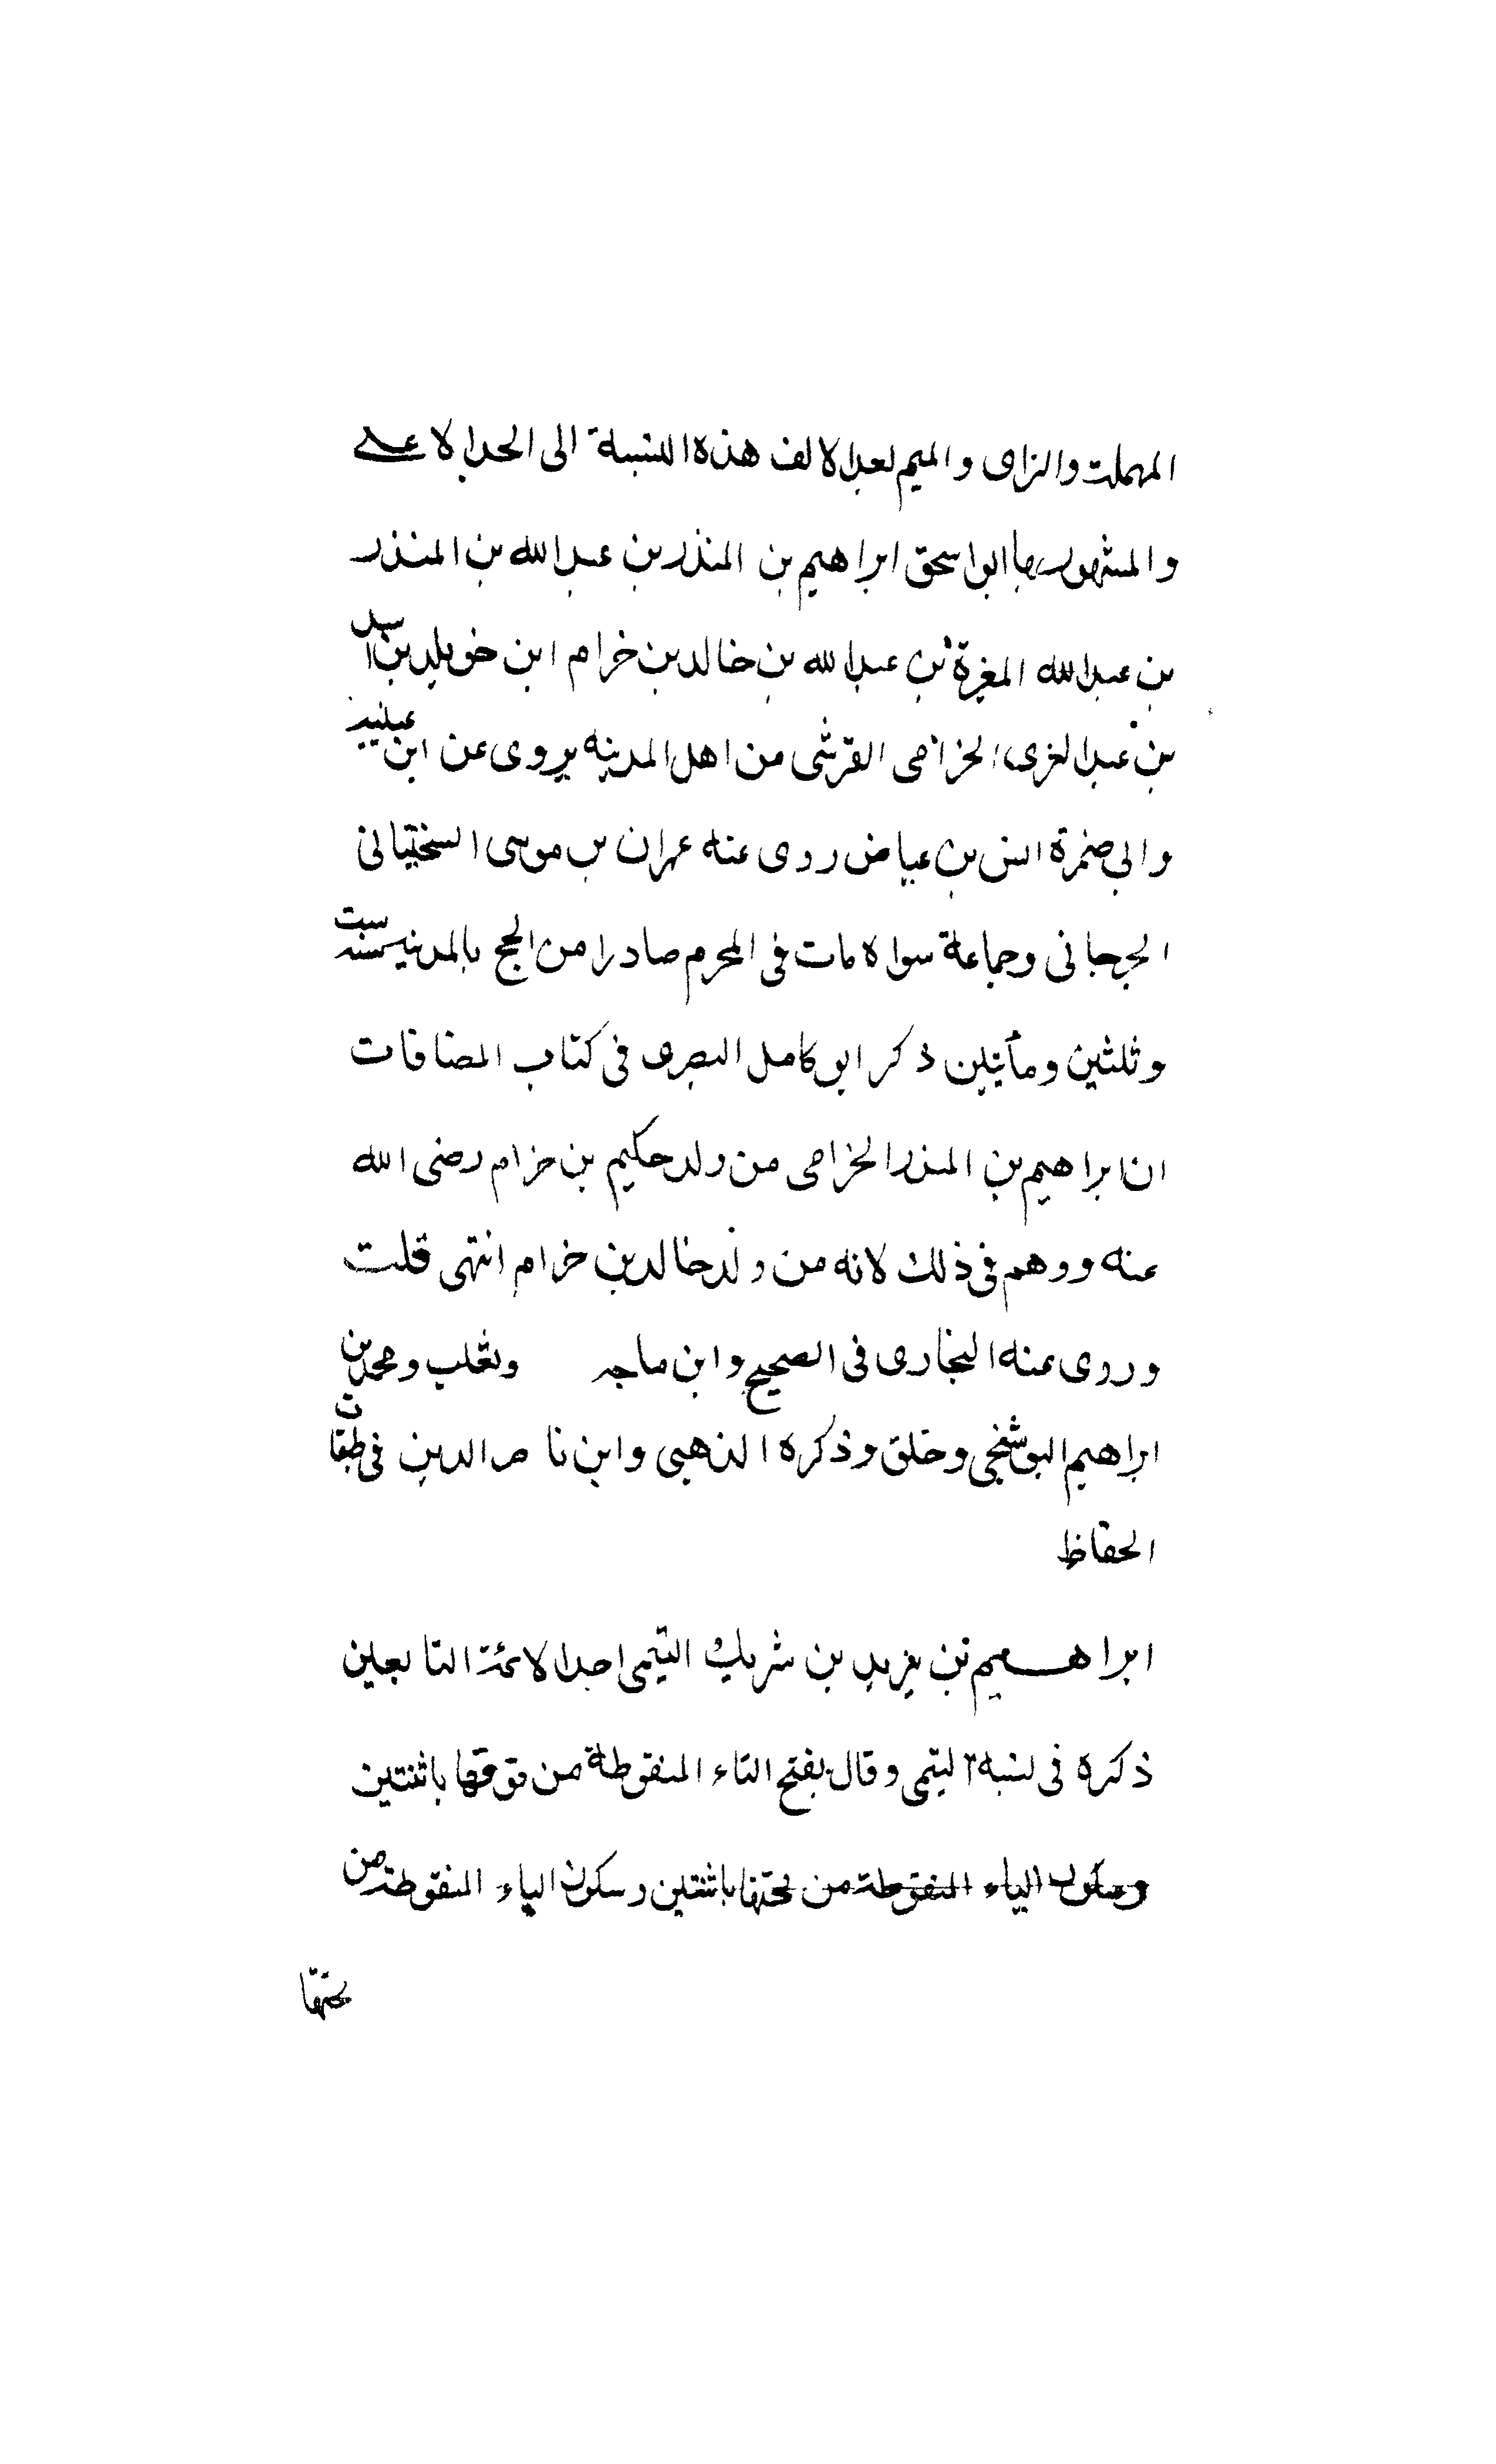 المهملة والزاى والميم بعد الالف هذه النسبة الى الجد الاعلى
والمشهور بها ابو اسحق ابراهيم بن المنذر بن عبد الله بن المنذر
بن عبد الله المغيرة بن عبد الله بن خالد بن خزام ابن خويلد بن اسد
بن عبد العزى الخزامى القرشى من اهل المدينه يروى عن ابن عيينه
وابى ضمرة انس بن عياض روى عنه عمران بن موسى السختيانى
الجرجانى وجماعة سواه مات فى المحرم صادرا من الحج بالمدينه سنه ست
وثلثين ومأتين ذكر ابو كامل البصرى فى كتاب المضافات
ان ابراهيم بن المنذر الخزامى من ولد حكيم بن حزام رضى الله
عنه ووهم فى ذلك لانه من ولد خالد بن خزام انتهى قلت
وروى عنه البخارى فى الصحيح وابن ماجه وثعلب ومحمد بن
ابراهيم البوشنجى وخلق وذكره الذهبى وابن ناصر الدين فى طبقات
الحفاظ
ابراهيم بن يزيد بن شريك التيمى احد الائمة التابعين
ذكره فى نسبة التيمى وقال بفتح التاء المنقوطة من فوقها باثنتين
وسكون الياء المنقوطة من تحتها باثنتين وسكون الياء المنقوطة من
تحتها